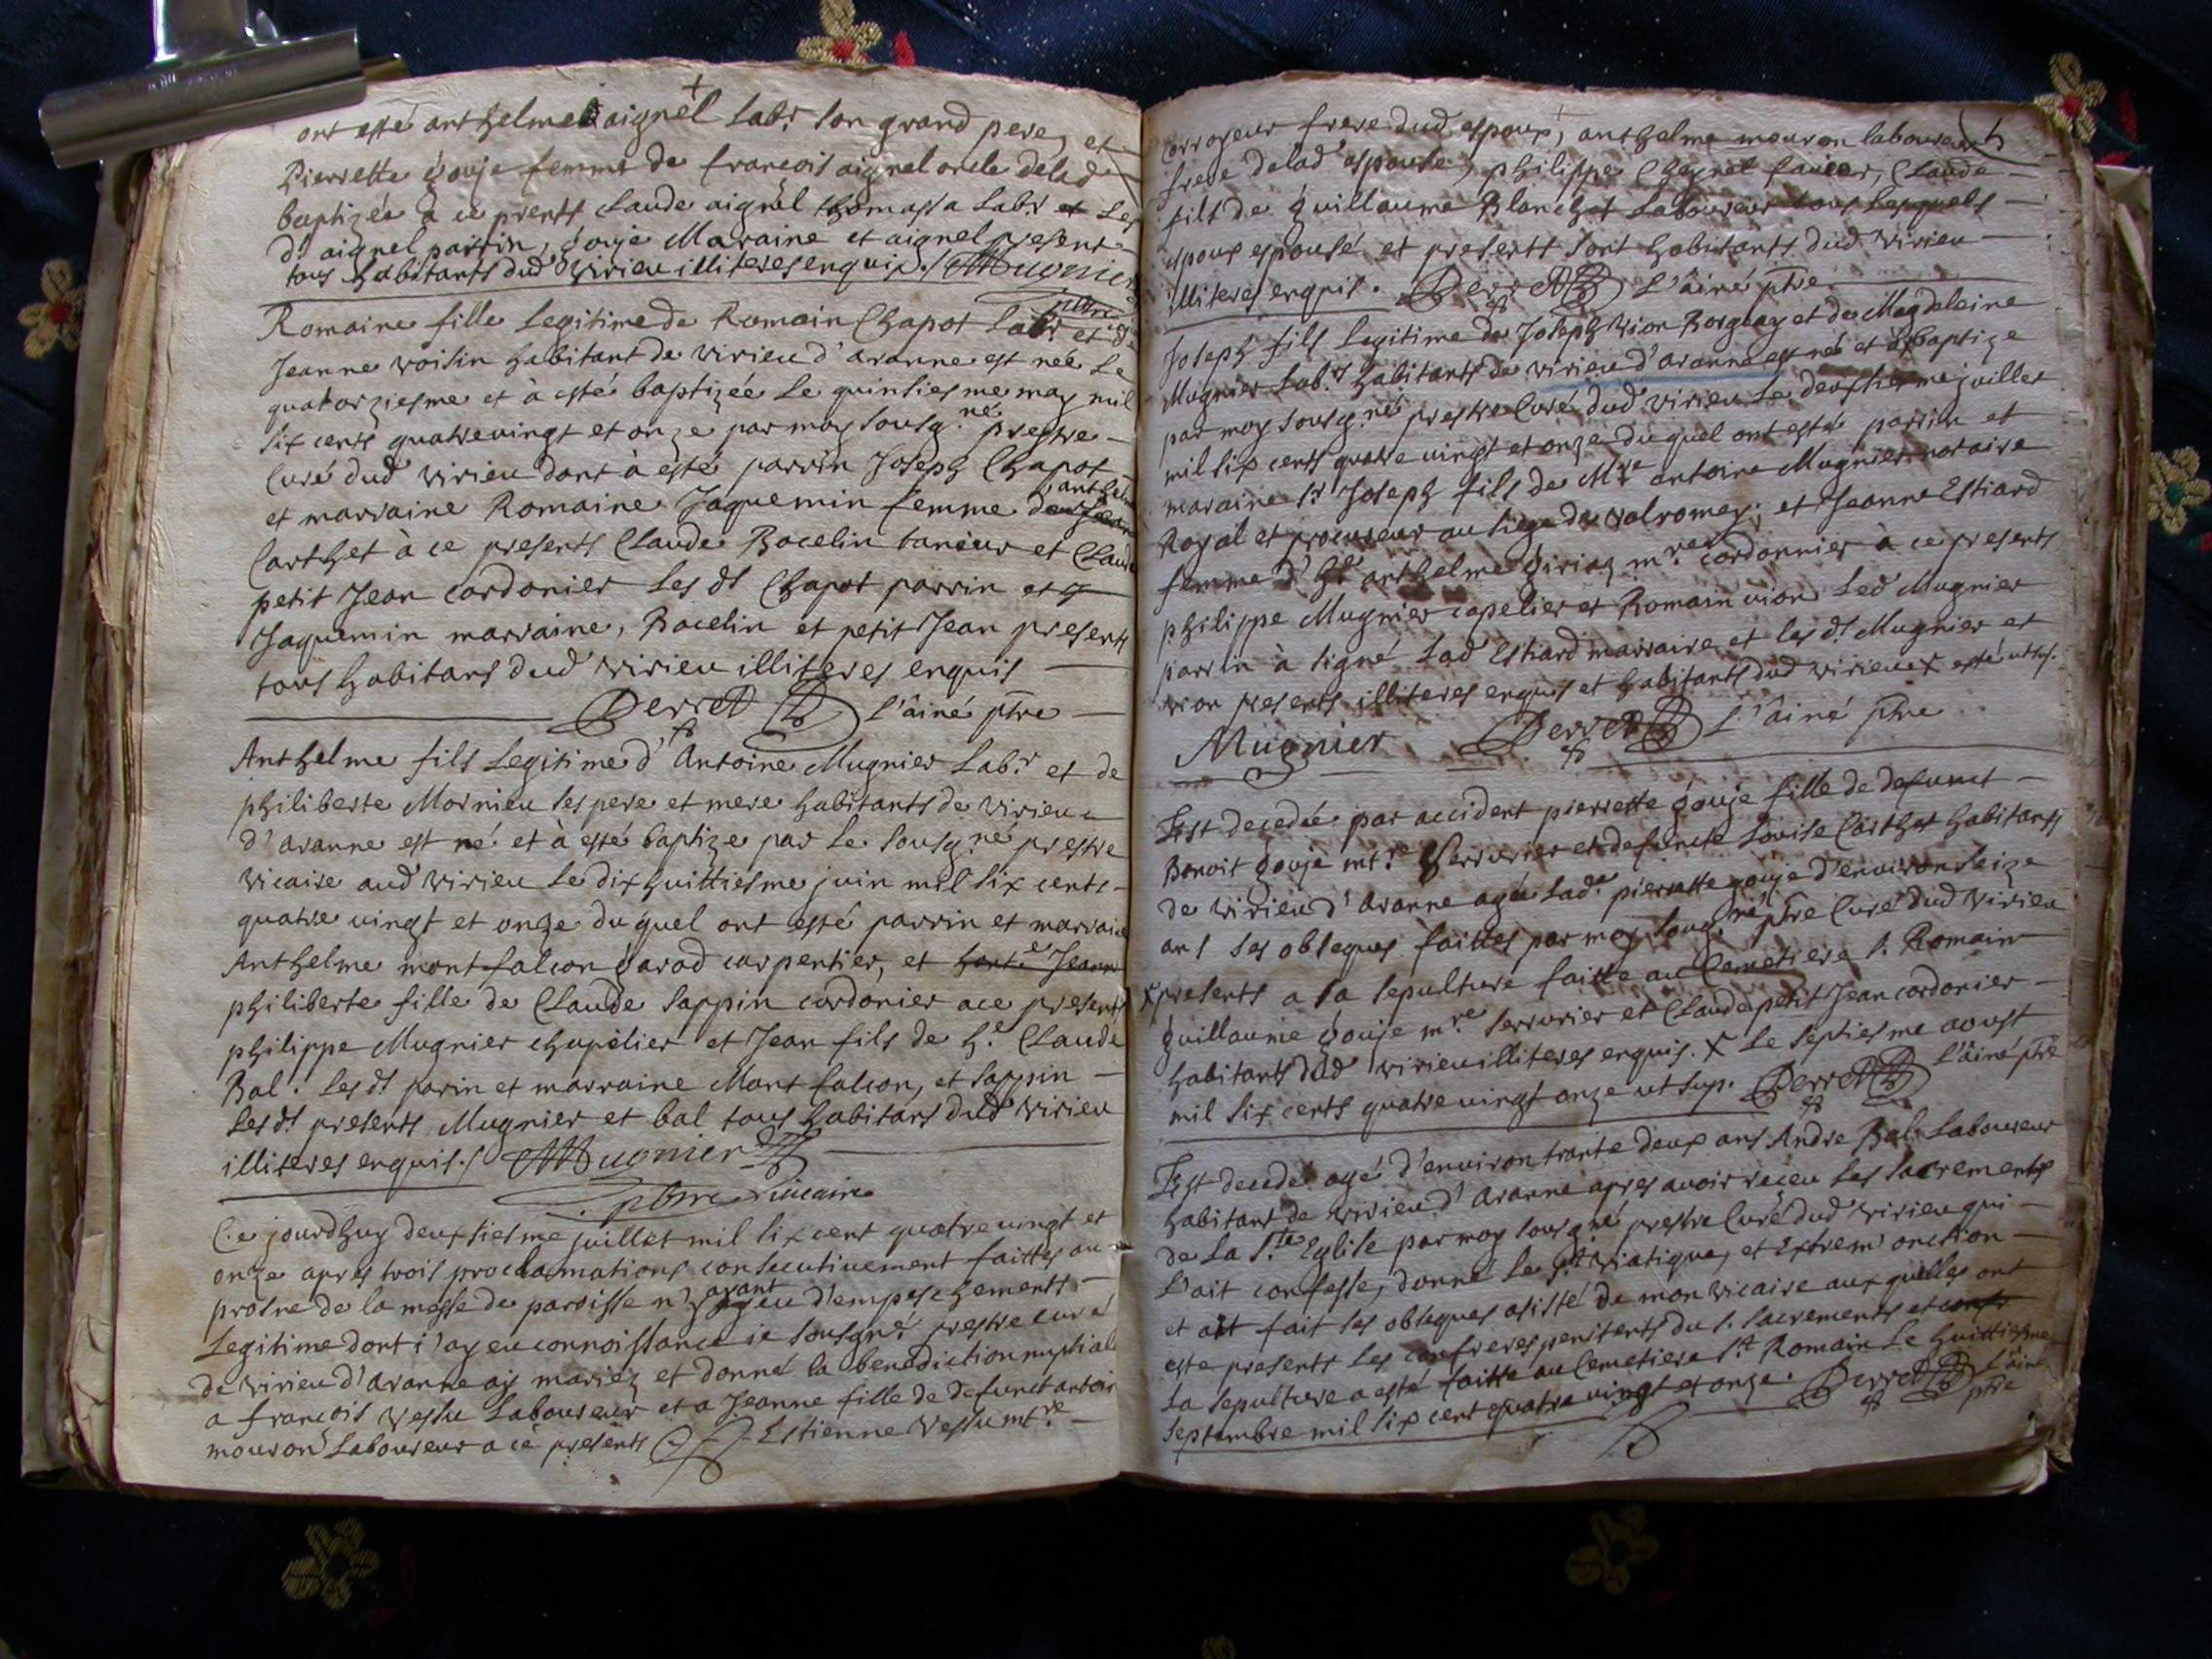 ont esté anthelme aignel labr. son grand pere, et
Pierrette gouje femme de francois aignel oncle delad
baptizée a ce prents Claude aignel thomassa labr. et les
ds. aignel parrin, gouje Maraine et aignel present
tous habitants dud virieu illiteres enquis./. Mugnier
Romaine fille legitime de Romain Chapot labr. et de
Jeanne voisin habitant de virieu d'aranne est née le
quatorziesme et à esté baptizée le quinsiesme may mil
six cents quatrevingt et onze par moy sousg.né prestre
Curé dud virieu dont à esté parrin Joseph Chapot
et marraine Romaine Jaquemin femme d'anthelme
Carthet à ce presents Claude Bocelin taneur et Claude
petit Jean cordonier les ds Chapot parrin et
Jaquemin marraine, Bocelin et petit Jean presents
tous habitans dud virieu illiteres enquis
Perret L'âiné ptre
Anthelme fils legitime d'Antoine Mugnier labr. et de
philiberte Mornieu ses pere et mere habitants de virieu
d'aranne est né et à esté baptize par le sousg.né prestre
vicaire aud virieu le dixhuittiesme juin mil six cents
quatre vingt et onze duquel ont esté parrin et marraine
Anthelme montfalcon garod carpentier, et
philiberte fille de Claude sappin cordonier a ce presents
philippe Mugnier chapelier et Jean fils de h.e Claude
Bal. les ds parin et marraine Montfalcon, et sappin
les ds. presents Mugnier et bal tous habitans dud virieu
illiteres enquis./. Mugnier
ptre vicaire
Ce jourdhuy deuxsiesme juillet mil six cent quatrevingt et
onze apres trois proclamations consecutivement faittes au
prosne de la messe de paroisse n'y ayant eu d'empeschements
legitime dont i'ay eu connoissance ie sousgné prestre curé
de virieu d'aranne ay mariez et donné la benediction nuptiale
a francois vessu laboureur et a Jeanne fille de defunct antoine
mouron laboureur a ce presents Estienne vessu mt.re
corroyeur frere dud espoux, anthelme mouron laboureur
frere delad espouse, philippe Chaynel tanieor, Claude
fils de guillaume Blanchet laboureur tous lesquels
espoux espousé et presents sont habitants dud virieu
illiteres enquis. Perret L'âiné ptre
Joseph fils legitime de Joseph vion Rosglay et de Magdeleine
Mugnier lab.rs habitants de virieu d'aranne est né et baptize
par moy sousg.né prestre Curé dud virieu le deuxsiesme juillet
mil six cents quatre vingt et onze duquel ont esté parrin et
maraine sr. Joseph fils de Mre antoine Mugnier notaire
Royal et procureur au siege de valromey, et Jeanne Estiard
femme d'h.e anthelme giriaz m.re cordonnier à ce presents
philippe Mugnier capelier et Romain vion led Mugnier
parrin à signé lad Estiard marraine et les ds. Mugnier et
vion presents illiteres enquis et habitants dud virieu
Mugnier Perret L'âiné ptre
Est decedée par accident pierrette gouje fille de defunct
Benoit gouje mt.re serrurier et defuncte Louise Carthet habitants
de virieu d'aranne agée lad.e pierrette gouje d'environ seize
ans ses obseques faittes par moy sousg.né ptre Curé dud virieu
x presents a sa sepulture faitte au Cemetiere s. Romain
guillaume gouje m.re serrurier et Claude petit Jean cordonier
habitants dud virieu illiteres enquis. x le septiesme aoust
mil six cents quatre vingt onze ut sup. Perret L'âiné ptre
Est decedé agé d'environ trante deux ans Andre Bal laboureur
habitant de virieu d'aranne apres avoir receu les sacrements
de la s.te Eglise par moy sousg.né prestre Curé dud virieu qui
l'ait confesse, donné le st. viatique, et Extrem'onction
et ait fait ses obseques asisté de mon vicaire aux quelles ont
este presents les confreres penitents du s. sacrements et
la sepulture a esté faitte au Cemetiere st. Romain le huittiesme
septembre mil six cent quatre vingt et onze. Perret L'âiné
ptre